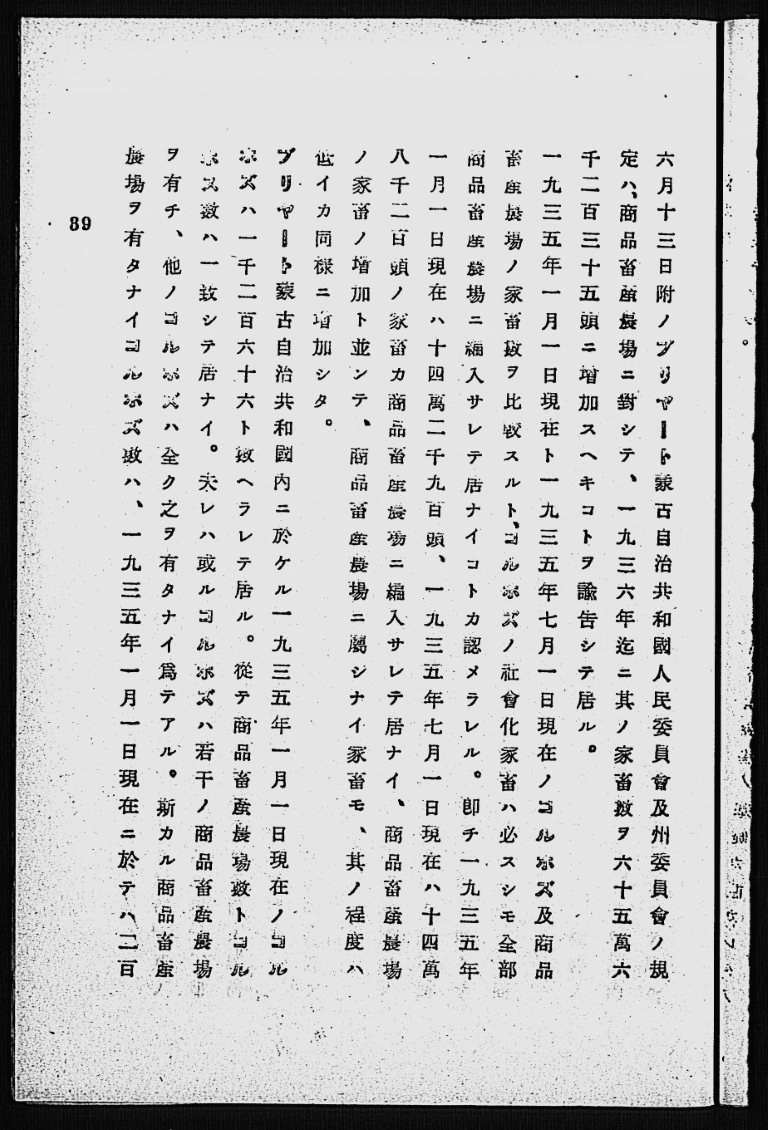 六月十三日附ノブリヤート蒙古自治共和國人民委員會及州委員會ノ規
定ハ、商品畜産農場ニ對シテ、一九三六年迄ニ其ノ家畜数ヲ六十五萬六
千二百三十五頭ニ増加スヘキコトヲ諭告シテ居ル。
一九三五年一月一日現在ト一九三五年七月一日現在ノコルホズ及商品
畜産農場ノ家畜数ヲ比較スルト、コルホズノ社會化家畜ハ必スシモ全部
商品畜産農場ニ編入サレテ居ナイコトカ認メラレル。即チ一九三五年
一月一日現在ハ十四萬二千九百頭、一九三五年七月一日現在ハ十四萬
八千二百頭ノ家畜カ商品畜産農場ニ編入サレテ居ナイ、商品畜産農場
ノ家畜ノ増加ト並ンテ、商品畜産農場ニ屬シナイ家畜モ、其ノ程度ハ
低イカ同樣ニ増加シタ。
ブリヤート蒙古自治共和國内ニ於ケル一九三五年一月一日現在ノコル
ホズハ一千二百六十六ト数ヘラレテ居ル。從テ商品畜産農場数トコル
ホズ数ハ一致シテ居ナイ。夫レハ或ルコルホズハ若干ノ商品畜産農場
ヲ有チ、他ノコルホズハ全ク之ヲ有タナイ爲テアル。斯カル商品畜産
農場ヲ有タナイコルホズ数ハ、一九三五年一月一日現在ニ於テハ二百
89